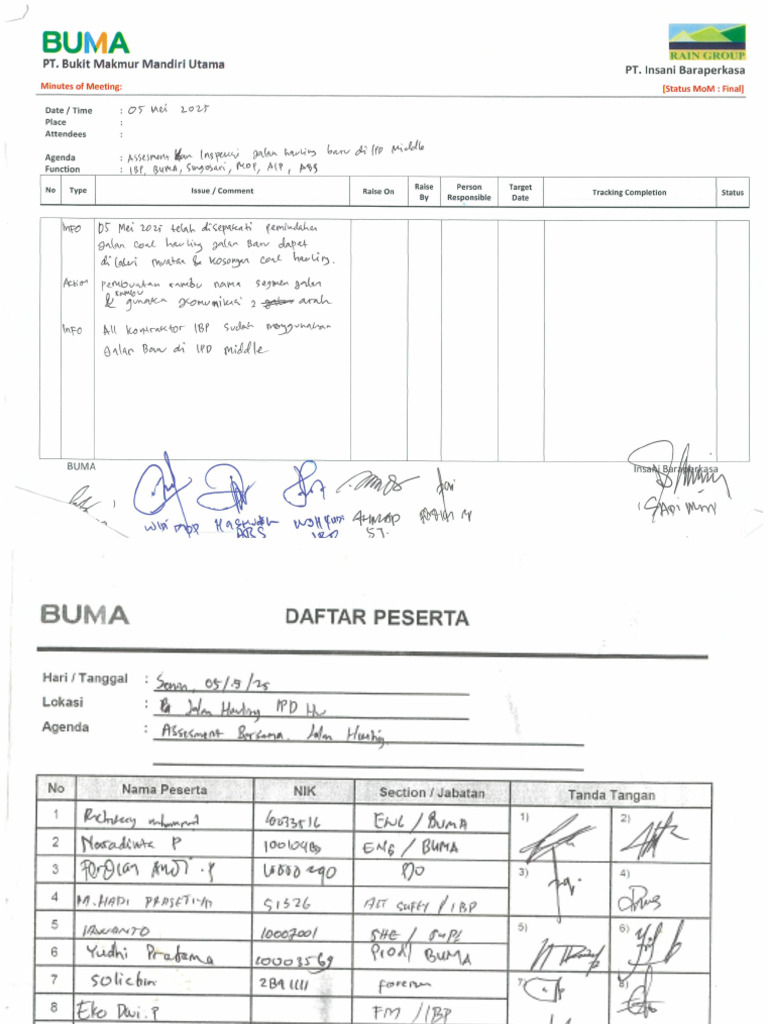 BUMA
PT. Bukit Makmur Mandiri Utama
RAIN GROUP
PT. Insani Baraperkasa
Minutes of Meeting:
[Status MoM : Final]
Date / Time : 05 Mei 2025
Place :
Attendees :
Agenda : Assesment dan Inspeksi jalan hauling baru di IPD Middle
Function : IBP, BUMA, Singosari, MOP, AIP, ABS
No Type Issue / Comment Raise On Raise By Person Responsible Target Date Tracking Completion Status
Info 05 Mei 2025 telah disepakati pemindahan
jalan coal hauling jalan Baru dapat
dilalui muatan & kosongan coal hauling.
Action pembuatan rambu nama segmen jalan
& rambu gunakan komunikasi 2 arah
Info All kontraktor IBP sudah menggunakan
jalan Baru di IPD Middle
BUMA
Insani Baraperkasa
BUMA
DAFTAR PESERTA
Hari / Tanggal : Senin, 05/5/25
Lokasi : Jalan Hauling IPD
Agenda : Assesment Bersama Jalan Hauling
No Nama Peserta NIK Section / Jabatan Tanda Tangan
1 ENG / BUMA 1) 2)
2 Noradinta P ENG / BUMA
3 3) 4)
4 M. HADI PRASETIYA 51326 / IBP
5 10007001 SHE / 5) 6)
6 Yudhi Pratama 10003569 Prod / BUMA
7 Solichin 2B91111 foreman 7) 8)
8 Eko Dwi . P FM / IBP